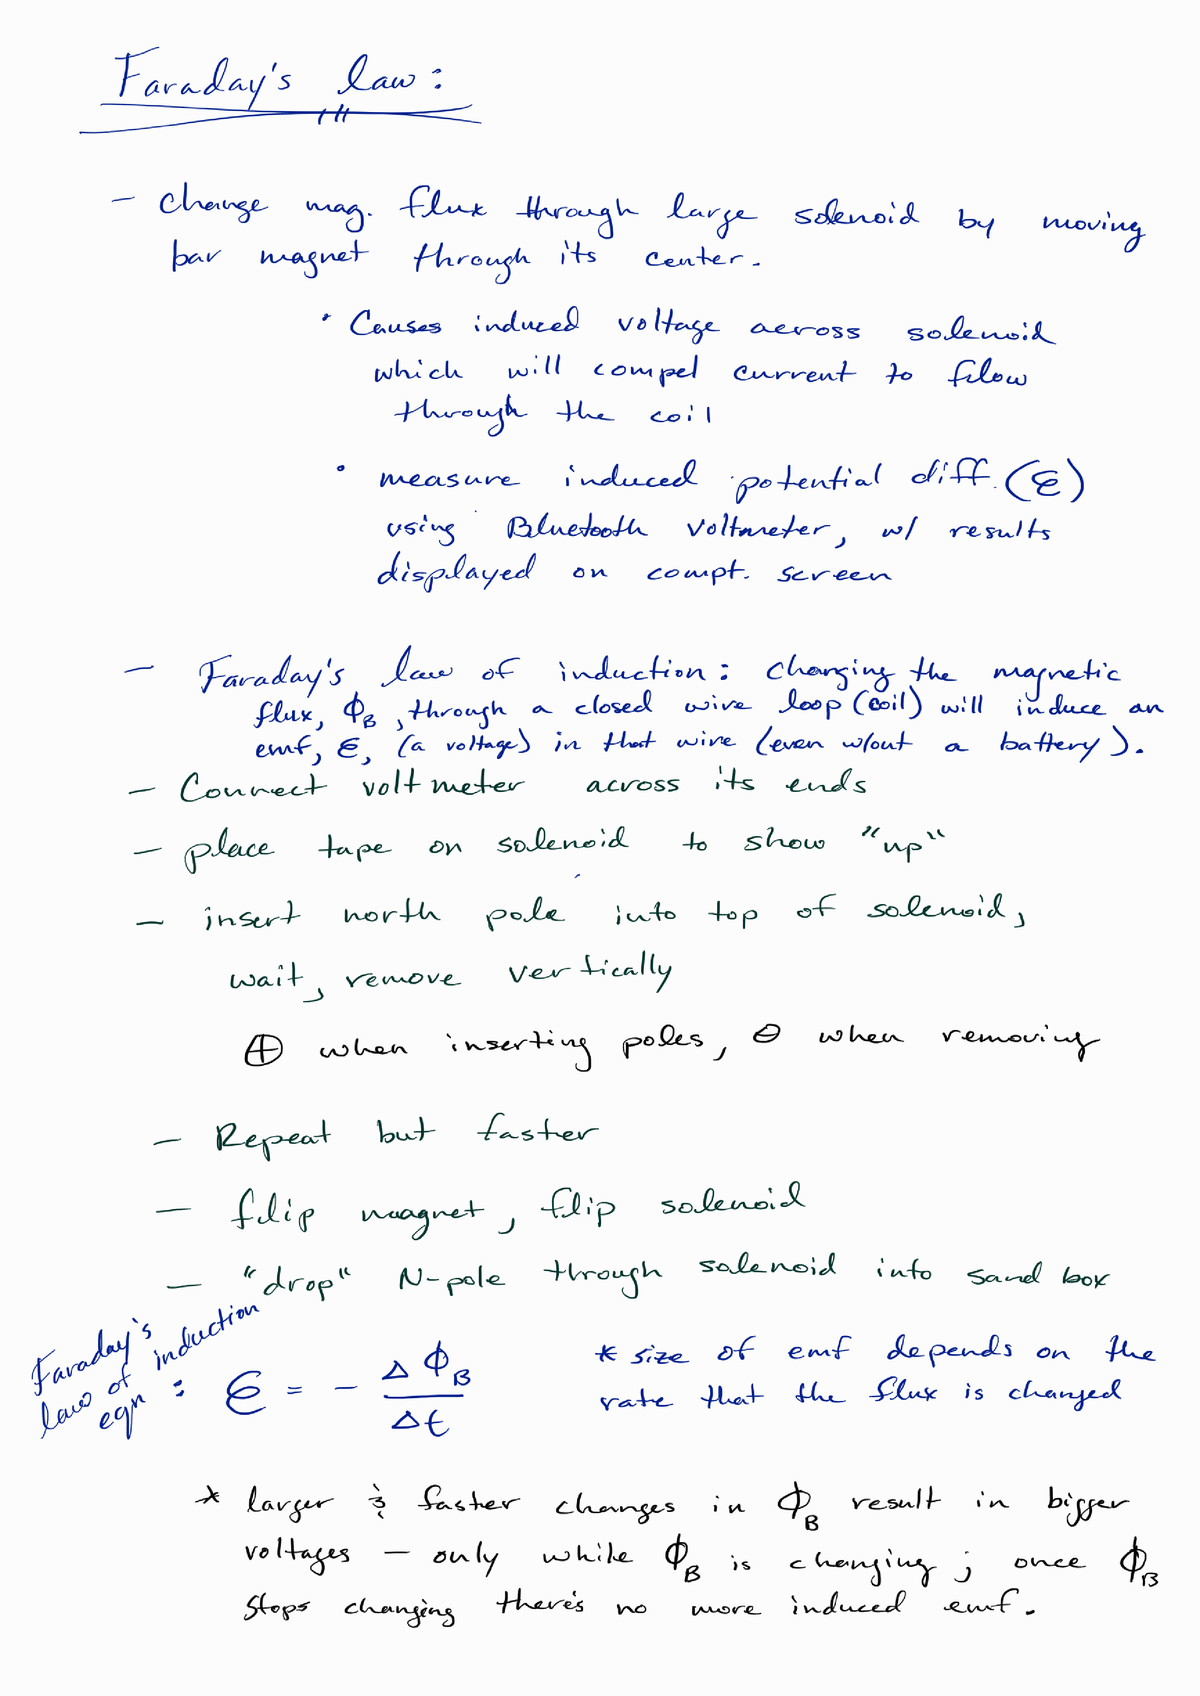 Faraday's law:
- change mag. flux through large solenoid by moving
bar magnet through its center.
• Causes induced voltage across solenoid
which will compel current to flow
through the coil
• measure induced potential diff. (ℰ)
using Bluetooth voltmeter, w/ results
displayed on compt. screen
- Faraday's law of induction: changing the magnetic
flux, Φ_B, through a closed wire loop (coil) will induce an
emf, ℰ, (a voltage) in that wire (even w/out a battery).
- Connect voltmeter across its ends
- place tape on solenoid to show "up"
- insert north pole into top of solenoid,
wait, remove vertically
⊕ when inserting poles, ⊖ when removing
- Repeat but faster
- flip magnet, flip solenoid
- "drop" N-pole through solenoid into sand box
Faraday's
law of induction
eqn : ℰ = - ΔΦ_B / Δt
* size of emf depends on the
rate that the flux is changed
* larger & faster changes in Φ_B result in bigger
voltages - only while Φ_B is changing; once Φ_B
stops changing there's no more induced emf.